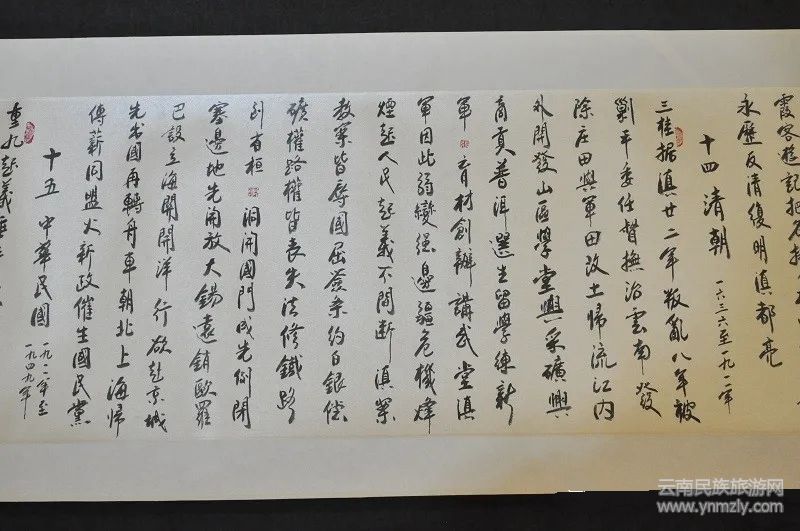 霞客遊記把名揚
永歷反清復明滇都亮
十四 清朝 一六三六至一九一二年
三桂據滇廿二年叛亂八年被
剿平委任督撫治雲南發
除庄田興軍田改土歸流江内
外開發山區學堂興采礦興
商貢普洱選生留學練新
軍 育材創辦講武堂滇
軍因此弱變强邊疆危機烽
煙起人民起義不間斷滇案
教案皆辱國屈簽条約白銀償
礦權路權皆丧失法修鐵路
到省垣 洞開國門咸先例開
塞邊地先開放大錫遠銷歐羅
巴設立海關開洋行欲赴京城
先出國再轉舟車朝北上海歸
傳薪同盟火新政催生國民黨
十五 中華民國 一九一二年至一九四九年
重九起義
云南民族旅游网
www.ynmzly.com